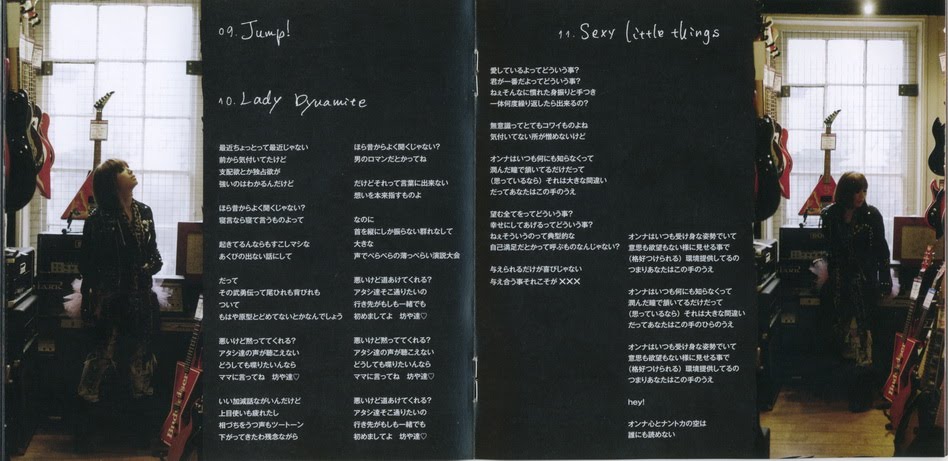 09. Jump!
10. Lady Dynamite
最近ちょっとって最近じゃない
前から気付いてたけど
支配欲とか独占欲が
強いのはわかるんだけど
ほら昔からよく聞くじゃない?
寝言なら寝て言うものよって
起きてるんならもすこしマシな
あくびの出ない話にして
だって
その武勇伝って尾ひれも背びれも
ついて
もはや原型とどめてないとかなんでしょう
悪いけど黙っててくれる?
アタシ達の声が聴こえない
どうしても喋りたいんなら
ママに言ってね 坊や達♡
いい加減話ながいんだけど
上目使いも疲れたし
相づちをうつ声もツートーン
下がってきたわ残念ながら
ほら昔からよく聞くじゃない?
男のロマンだとかってね
だけどそれって言葉に出来ない
想いを本来指すものよ
なのに
首を縦にしか振らない群れなして
大きな
声でぺらぺらの薄っぺらい演説大会
悪いけど道あけてくれる?
アタシ達そこ通りたいの
行き先がもしも一緒でも
初めましてよ 坊や達♡
悪いけど黙っててくれる?
アタシ達の声が聴こえない
どうしても喋りたいんなら
ママに言ってね 坊や達♡
悪いけど道あけてくれる?
アタシ達そこ通りたいの
行き先がもしも一緒でも
初めましてよ 坊や達♡
11. Sexy little things
愛しているよってどういう事?
君が一番だよってどういう事?
ねぇそんなに慣れた身振りと手つき
一体何度繰り返したら出来るの?
無意識ってとてもコワイものよね
気付いてない所が憎めないけど
オンナはいつも何にも知らなくって
潤んだ瞳で頷いてるだけだって
(思っているなら) それは大きな間違い
だってあなたはこの手のうえ
望む全てをってどういう事?
幸せにしてあげるってどういう事?
ねぇそういうのって典型的な
自己満足だとかって呼ぶものなんじゃない?
与えられるだけが喜びじゃない
与え合う事それこそが ×××
オンナはいつも受け身な姿勢でいて
意思も欲望もない様に見せる事で
(格好つけられる) 環境提供してるの
つまりあなたはこの手のうえ
オンナはいつも何にも知らなくって
潤んだ瞳で頷いてるだけだって
(思っているなら) それは大きな間違い
だってあなたはこの手のひらのうえ
オンナはいつも受け身な姿勢でいて
意思も欲望もない様に見せる事で
(格好つけられる) 環境提供してるの
つまりあなたはこの手のうえ
hey!
オンナ心とナントカの空は
誰にも読めない